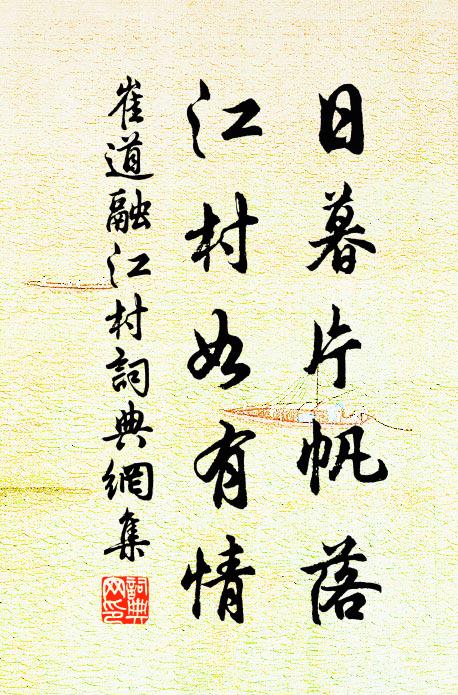 日暮片帆落
江村如有情
崔道融江村詞典網集
詞典
网印